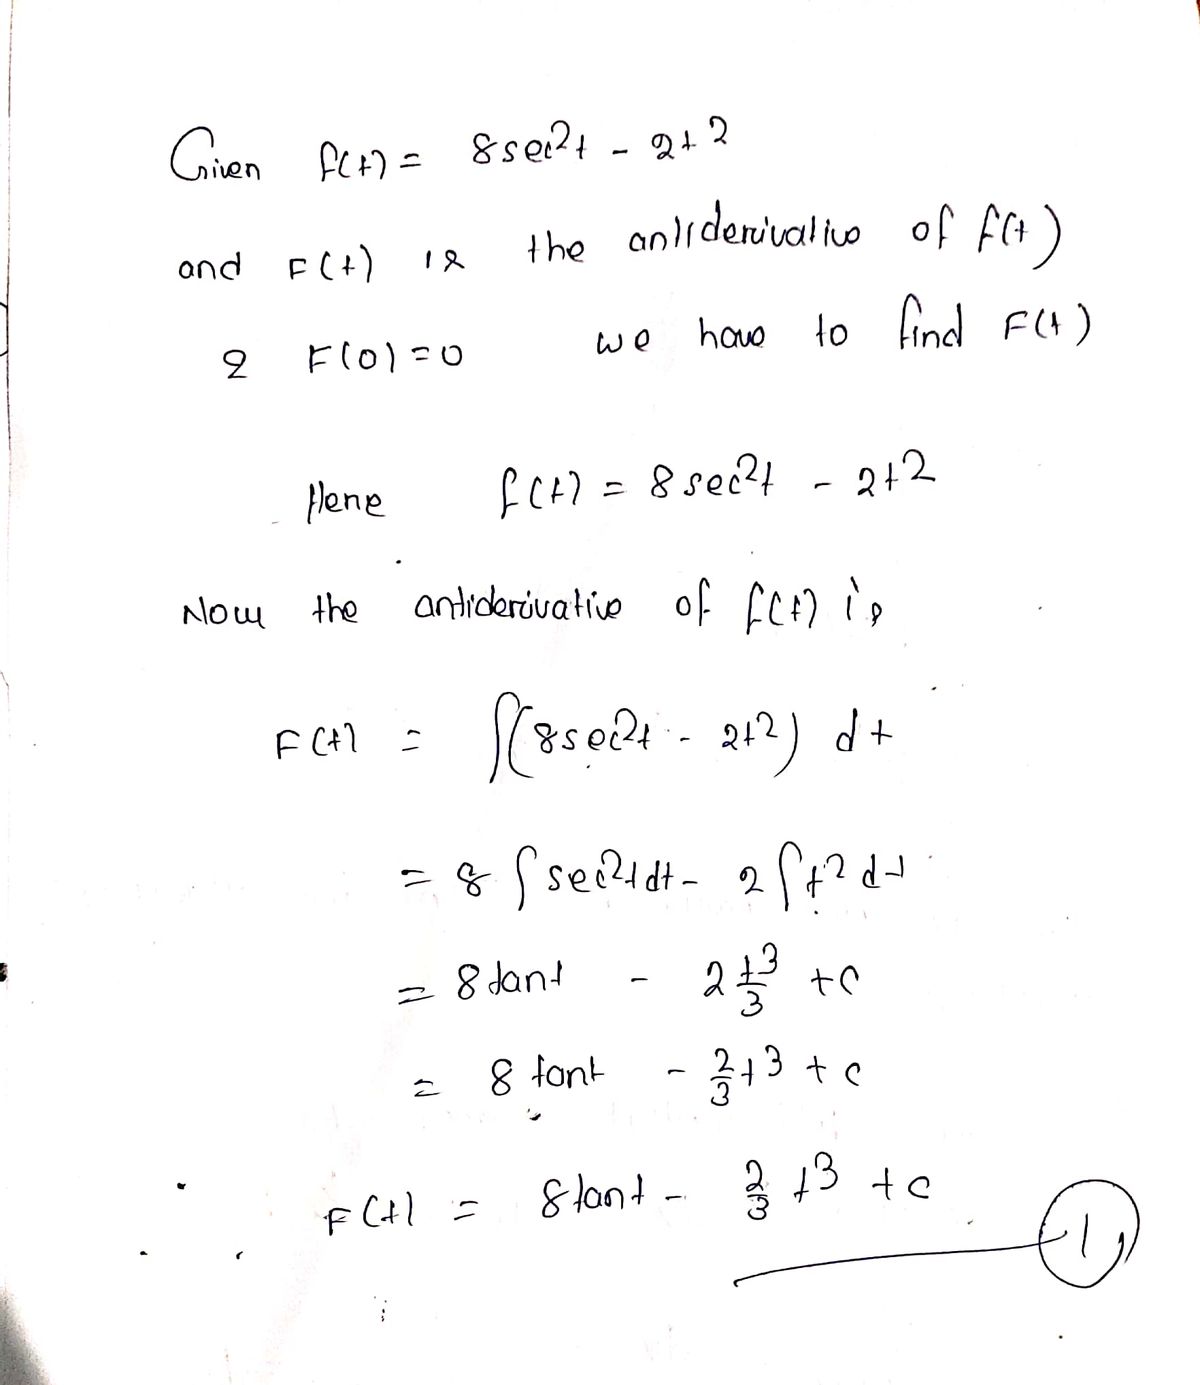 Given f(t) = 8sec²t - 2t²
and F(t) is the antiderivative of f(t)
& F(0)=0 we have to find F(t)
Here f(t) = 8 sec²t - 2t²
Now the antiderivative of f(t) is
F(t) = ∫(8sec²t - 2t²) dt
= 8 ∫ sec²t dt - 2 ∫ t² dt
= 8 tant - 2 t³/3 + c
= 8 tant - 2/3 t³ + c
∴ F(t) = 8 tant - 2/3 t³ + c
1